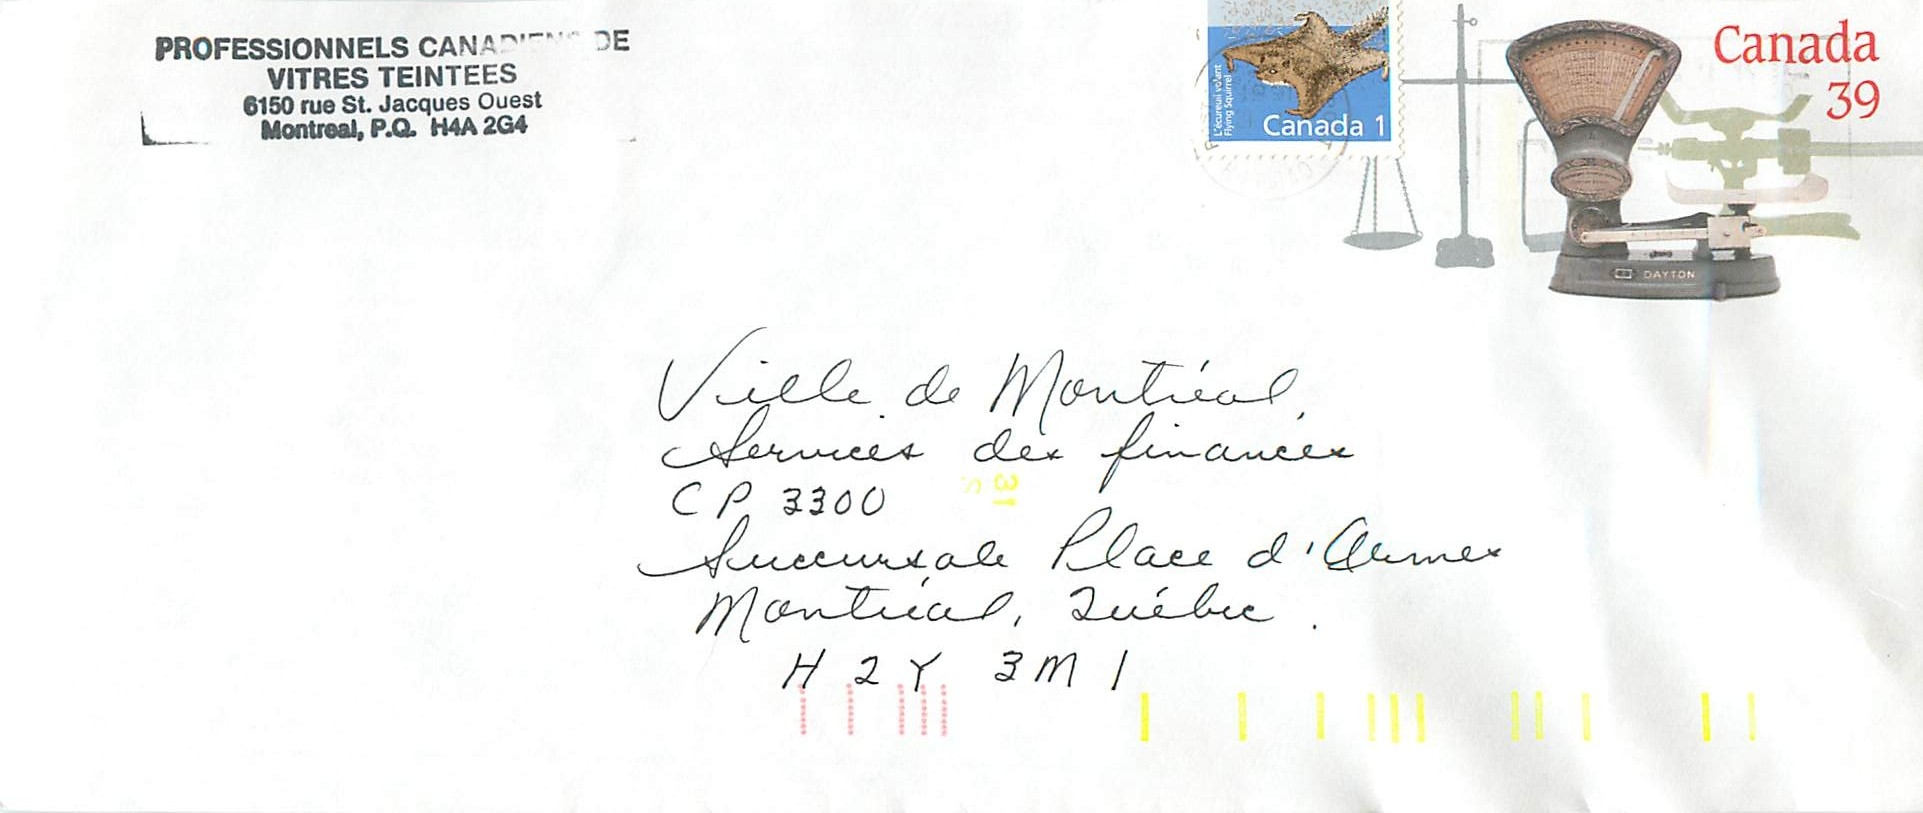 PROFESSIONNELS CANADIENS DE
VITRES TEINTEES
6150 rue St. Jacques Ouest
Montreal, P.Q. H4A 2G4
L'écureuil volant
Flying Squirrel
Canada 1
Canada
39
DAYTON
Ville de Montréal,
Services des finances
31
S
CP 3300
Succursale Place d'Armes
Montréal, Québec.
H2Y 3M1